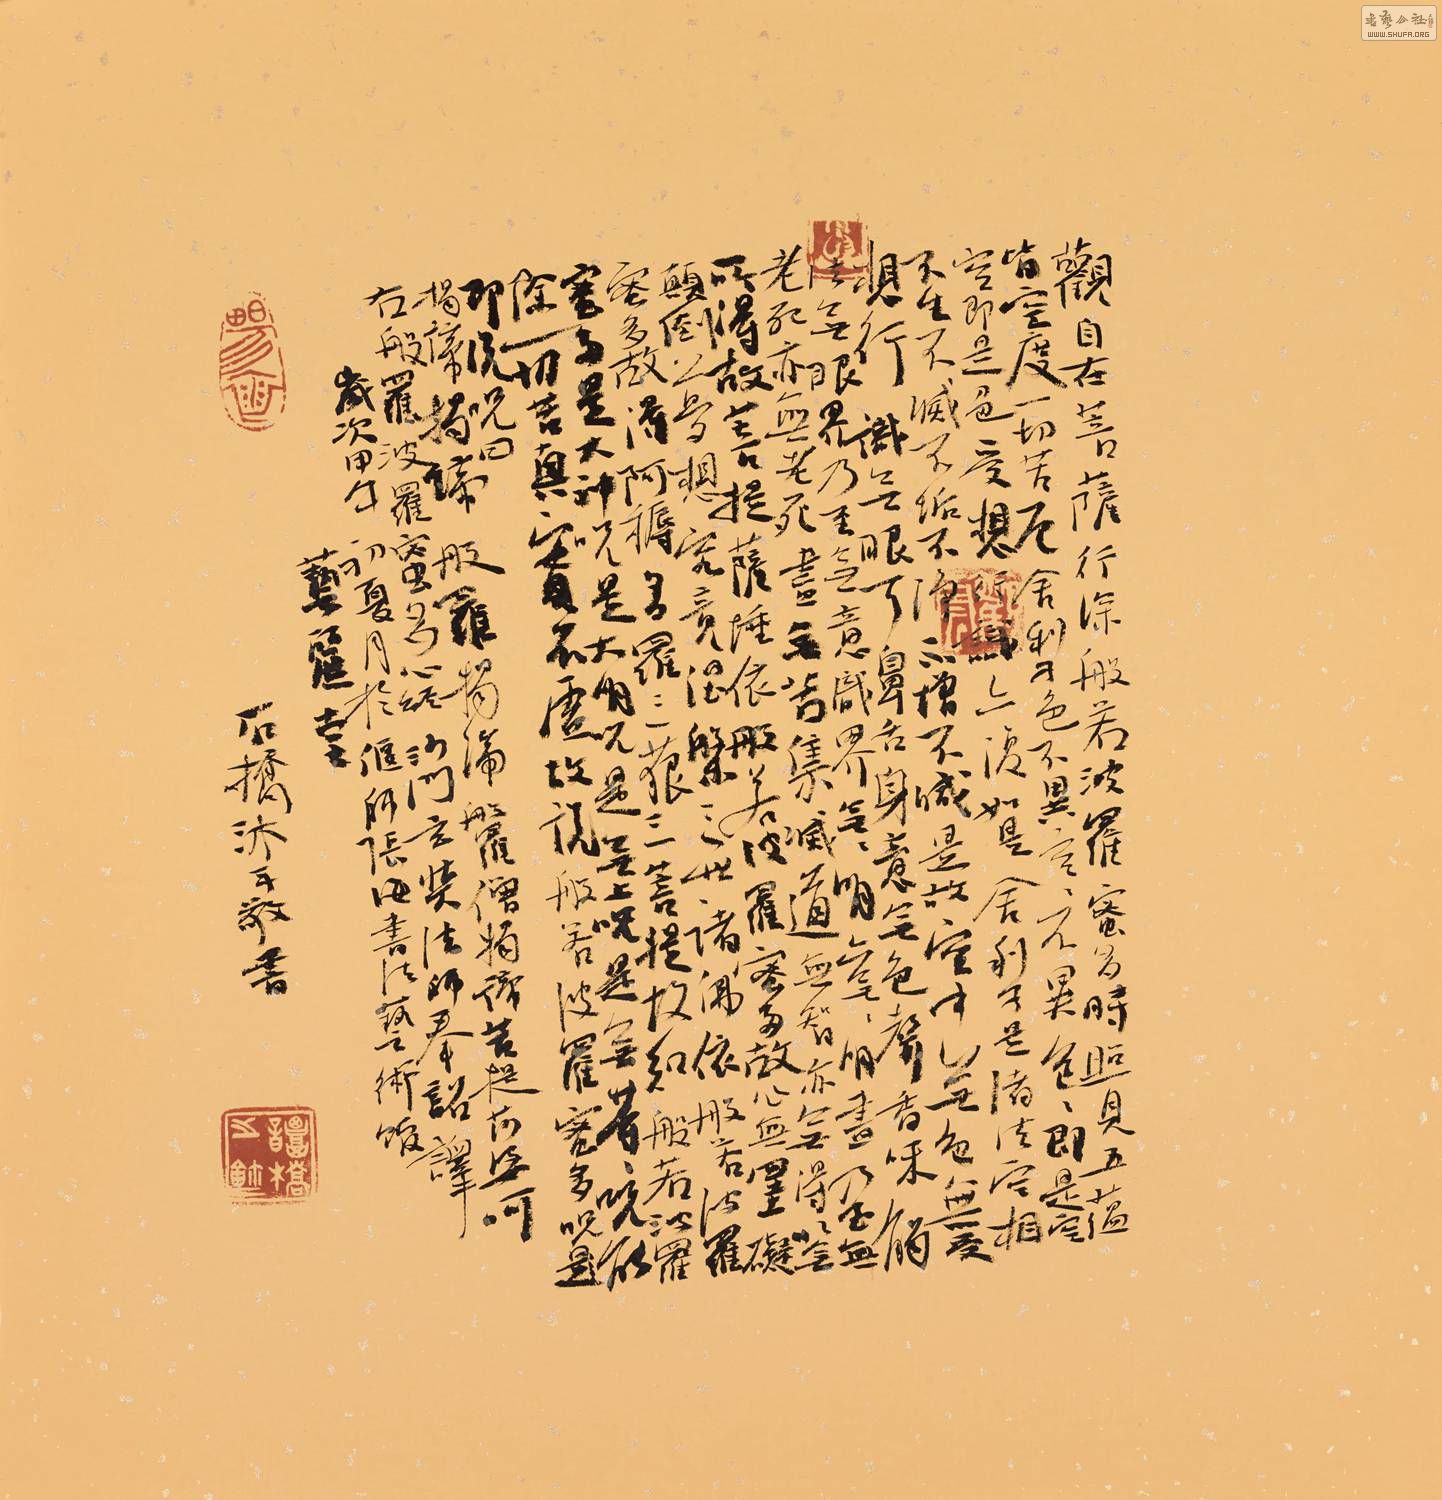 觀自在菩薩行深般若波羅蜜多時照見五蘊
皆空度一切苦厄舍利子色不異空空不異色色即是空
空即是色受想行識亦復如是舍利子是諸法空相
不生不滅不垢不淨不增不減是故空中無色無受
想行識無眼耳鼻舌身意無色聲香味觸
法無眼界乃至無意識界無無明亦無無明盡乃至無
老死亦無老死盡無苦集滅道無智亦無得以無
所得故菩提薩埵依般若波羅蜜多故心無罣礙
顛倒夢想究竟涅槃三世諸佛依般若波羅
蜜多故得阿耨多羅三藐三菩提故知般若波羅
蜜多是大神咒是大明咒是無上咒是無等等咒能
除一切苦真實不虛故說般若波羅蜜多咒是
即說咒曰
揭諦揭諦般羅揭諦般羅僧揭諦菩提莎婆呵
右般羅波羅蜜多心經沙門玄奘法師奉詔譯
歲次甲午初夏月於偃師張海書法藝術館
藝蘆主
石橋沐手敬書
書藝公社
WWW.SHUFA.ORG